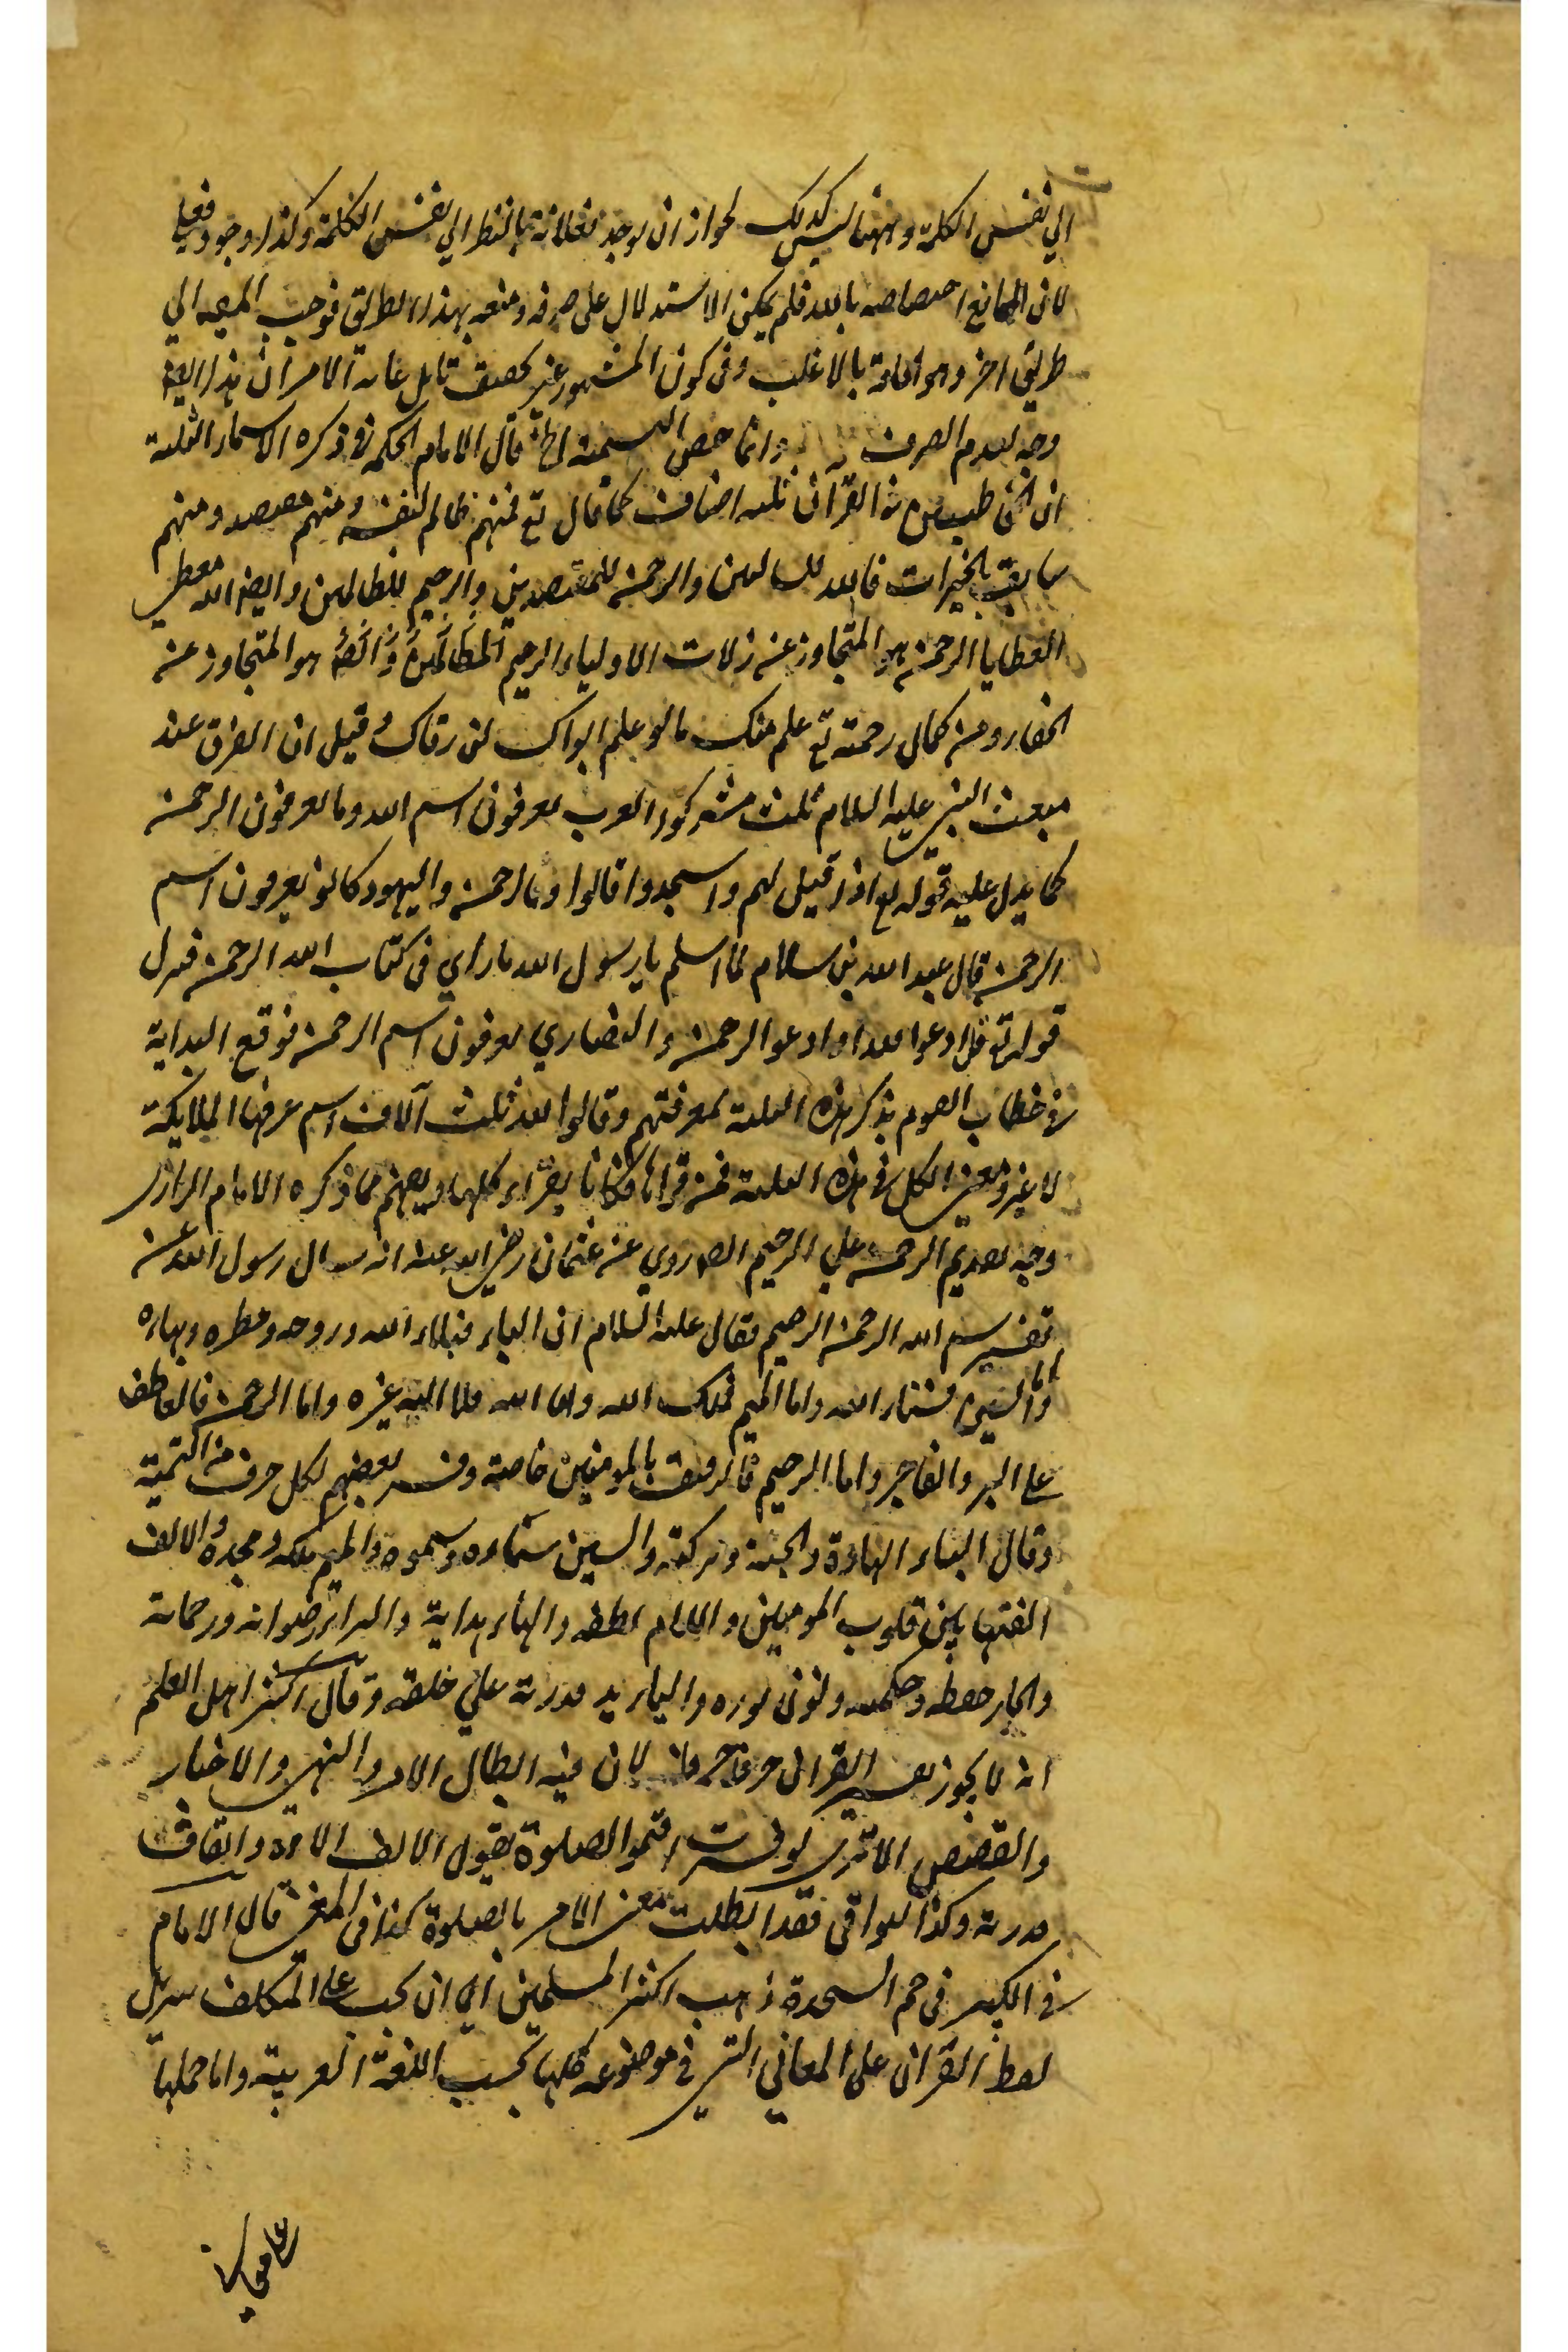 الي نفس الكلمة وههنا ليس كذلك لجواز ان يوجد فعلانة بالنظر الي نفس الكلمة وكذا وجود فعلي
لان المانع اختصاصه بالله فلم يمكن الاستدلال على صرفه ومنعه بهذا الطريق فوجب المصير الي
طريق اخر وهو الحاقه بالاغلب وفي كون المشهور غير تامل غاية الامر ان هذا ايضا
وجه لعدم الصرف وانما خص التسمية الخ قال الامام الحكمة في ذكره الاسماء الثلثة
ان المخاطبين في القرآن ثلثة اصناف كما قال تع فمنهم ظالم لنفسه ومنهم مقتصد ومنهم
سابق بالخيرات فالله للسابقين والرحمن للمقتصدين والرحيم للظالمين وايضا الله معطي
العطايا الرحمن هو المتجاوز عن زلات الاولياء الرحيم للظالمين وايضا هو المتجاوز عن
الجفا ومن كمال رحمته تع علم منك ما لو علم ابواك لن وقيل ان الفرق عند
مبعث النبي عليه السلام ثلث مشركوا العرب يعرفون اسم الله وما يعرفون الرحمن
كما يدل عليه قوله تع اذا قيل لهم واسجدوا قالوا وما الرحمن واليهود كانوا يعرفون اسم
الرحمن قال عبد الله بن سلام لما اسلم يا رسول الله ما راي في كتاب الله الرحمن فنزل
قوله تع قل ادعوا الله او ادعوا الرحمن والنصاري يعرفون اسم الرحمن فوقع البداية
في خطاب القوم بذكر هذه الثلثة لمعرفتهم وقالوا لله ثلث آلاف اسم عرفها الملايكة
لا غير ومعنى الكل في هذه الثلثة فمن قراها فكانما يقراء كلها ويفهم مما ذكره الامام الرازي
وجه تقديم الرحمن علي الرحيم روي عن عثمان رضي الله عنه انه سال رسول الله عن
تفسير بسم الله الرحمن الرحيم فقال عليه السلام ان الباء فبلاء الله وروحه و وبهاءه
واما السين فسناء الله واما الميم فملك الله واما الله فلا اله غيره واما الرحمن فالعاطف
على البر والفاجر واما الرحيم فالرفيق بالمومنين خاصة وفسر بعضهم لكل حرف من التسمية
وقال الباء بهاءه والجنة وبركته والسين سناءه وسموه والميم ملكه ومجده والالف
الفتها بين قلوب المومنين واللام لطفه والهاء هدايته والراء رضوانه ورحمانه
والحاء حفظه وحكمته ونون نوره والياء يد قدرته علي خلقه وقال اكثر اهل العلم
انه لا يجوز تفسير القران حرفا حرفا لان فيه ابطال الامر والنهي والاخبار
والقصص الا تري لو فسرت اقيموا الصلوة بقول الالف الاءه والقاف
قدرته وكذا البواقي فقد ابطلت معنى الامر بالصلوة كذا في المغني قال الامام
في الكبير في حم السجدة ذهب اكثر المسلمين الي ان يجب على المكلف تنزيل
لفظ القران على المعاني التي في موضوعه كلها بحسب اللغة العربية واما حملها
على